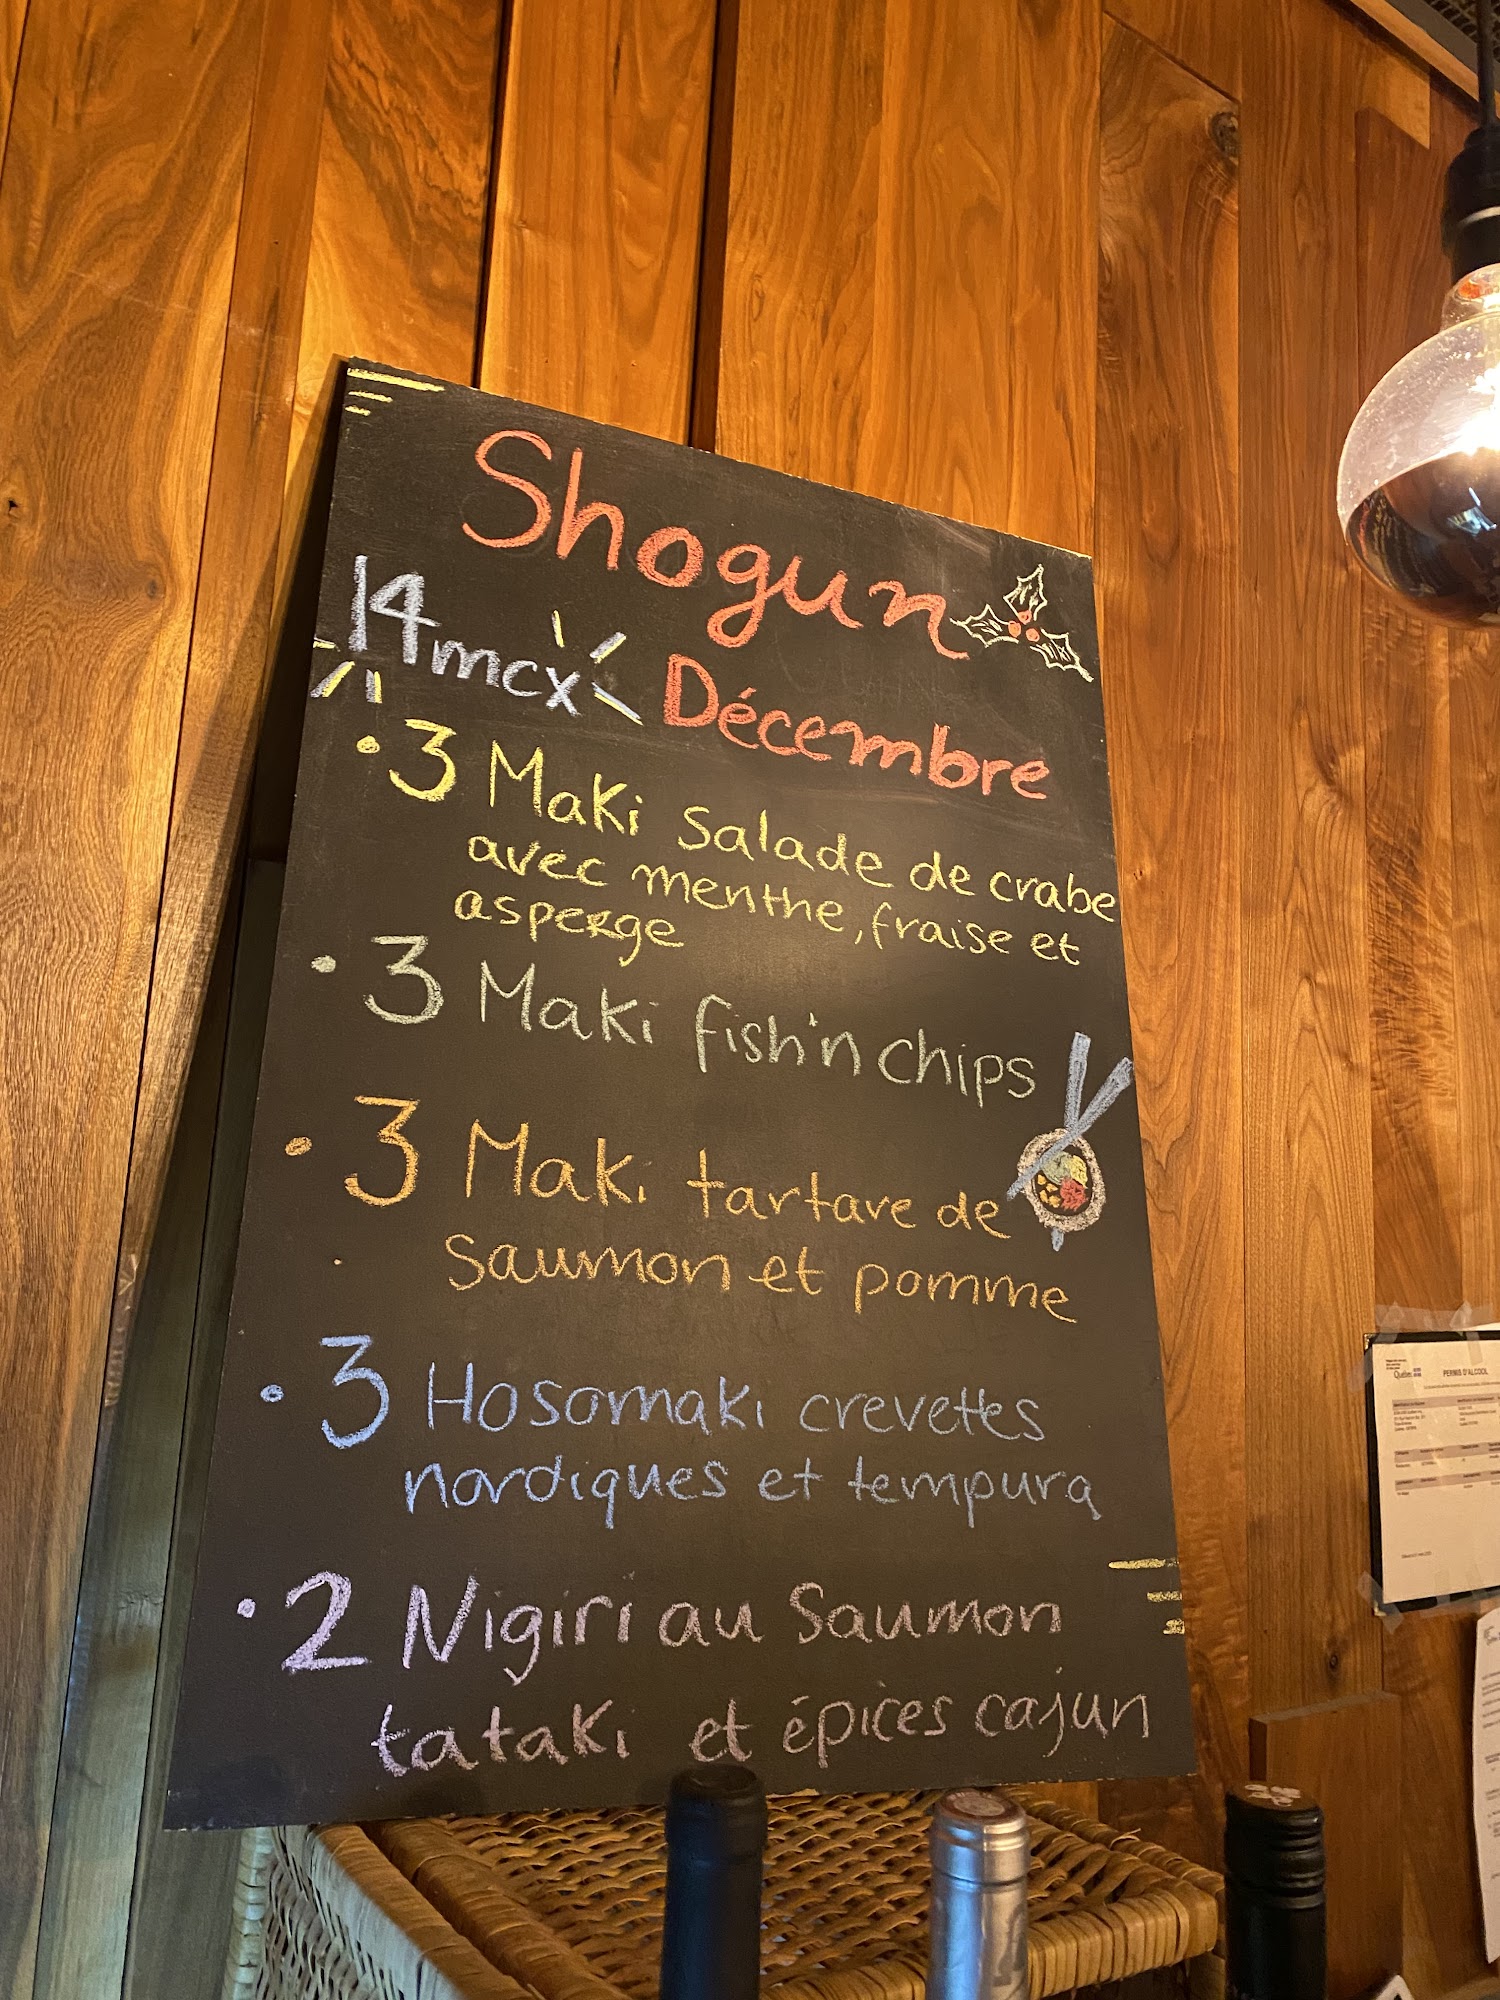 Shogun
14mcx
Décembre
• 3 Maki salade de crabe
avec menthe, fraise et
asperge
• 3 Maki fish'n chips
• 3 Maki tartare de
saumon et pomme
• 3 Hosomaki crevettes
nordiques et tempura
• 2 Nigiri au Saumon
tataki et épices cajun
Québec
PERMIS D'ALCOOL